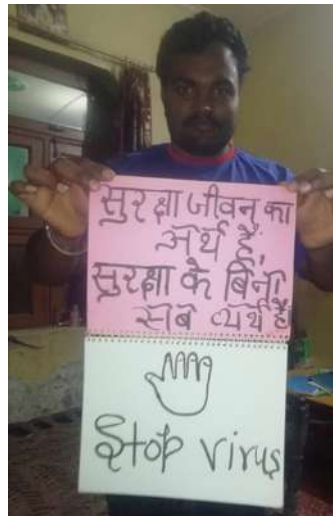 सुरक्षा जीवन का
अर्थ है,
सुरक्षा के बिना
सब व्यर्थ है।
Stop virus